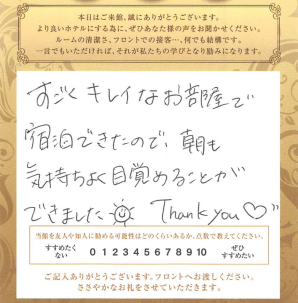 本日はご来館、誠にありがとうございます。
より良いホテルにする為に、ぜひあなた様の声をお聞かせください。
ルームの清潔さ、フロントでの接客…、何でも結構です。
一言でもいただければ、それが私たちの学びとなり励みになります。
すごくキレイなお部屋で
宿泊できたので、朝も
気持ちよく目覚めることが
できました Thank you♡
当館を友人や知人に勧める可能性はどのくらいあるか、点数で教えてください。
すすめたくない 0 1 2 3 4 5 6 7 8 9 10 ぜひすすめたい
ご記入ありがとうございます。フロントへお渡しください。
ささやかなお礼をさせていただきます。